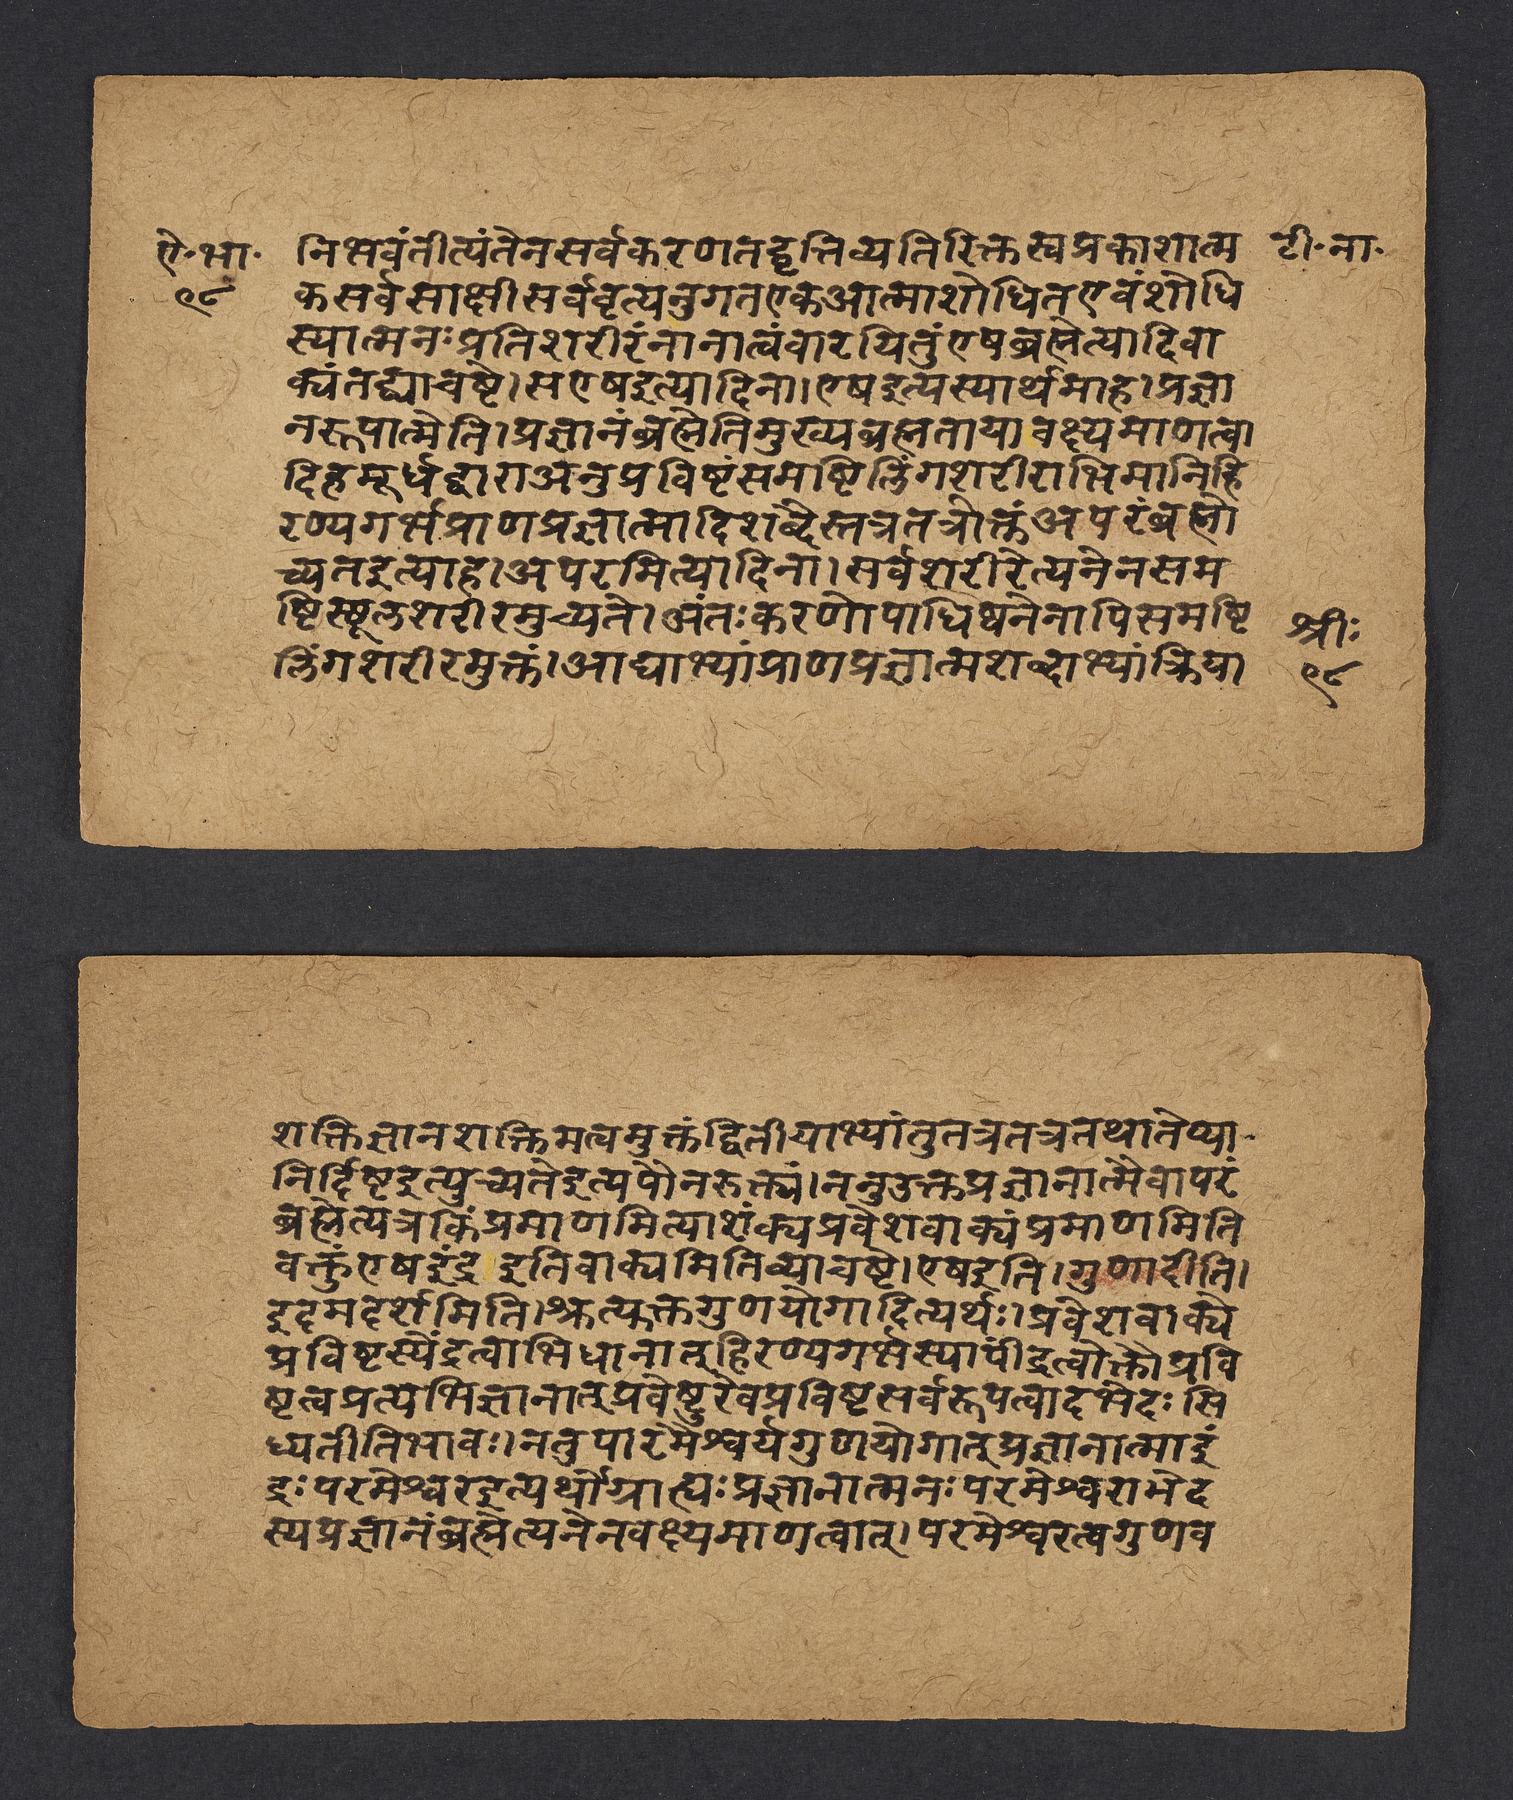 ऐ॰भा॰
९८
टी॰ना॰
निभवंतीत्यंतेनसर्वकरणतद्वृत्तिव्यतिरिक्तस्वप्रकाशात्म
कसर्वसाक्षीसर्ववृत्यनुगतएकआत्माशोधितएवंशोधि
स्यात्मनःप्रतिशरीरंनानात्वंवारयितुंएषब्रह्मेत्यादिवा
क्यंतद्व्याचष्टे।सएषइत्यादिना।एषइत्यस्यार्थमाह।प्रज्ञा
नरूपात्मेति।प्रज्ञानंब्रह्मेतिमुख्यब्रह्मतायावक्ष्यमाणत्वा
दिहमूर्धद्वाराअनुप्रविष्टंसमष्टिलिंगशरीराभिमानिहि
रण्यगर्भप्राणप्रज्ञात्मादिशब्दैस्तत्रतत्रोक्तंअपरंब्रह्मो
च्यतइत्याह।अपरमित्यादिना।सर्वशरीरेत्यनेनसम
ष्टिस्थूलशरीरमुच्यते।अंतःकरणोपाधिष्वनेनापिसमष्टि
लिंगशरीरमुक्तं।आद्याभ्यांप्राणप्रज्ञात्मशब्दाभ्यांक्रिया
श्रीः
९८
शक्तिज्ञानशक्तिमत्वमुक्तंद्वितीयाभ्यांतुतत्रतत्रतथातेष्या-
निर्दिष्टइत्युच्यतेइत्यपौनरुक्त्यं।ननुउक्तप्रज्ञानात्मैवापरं
ब्रह्मेत्यत्रकिंप्रमाणमित्याशंक्यप्रवेशवाक्यंप्रमाणमिति
वक्तुंएषइंद्र इतिवाक्यमितिव्याचष्टे।एषइति।गुणादीति।
इदमदर्शमिति।श्रुत्युक्तगुणयोगादित्यर्थः।प्रवेशवाक्ये
प्रविष्टस्येंद्रत्वाभिधानात्हिरण्यगर्भस्यापींद्रत्वोक्तौप्रवि
ष्टत्वप्रत्यभिज्ञानात्प्रवेष्टुरेवप्रविष्टसर्वरूपत्वादभेदःसि
ध्यतीतिभावः।नतुपारमेश्वर्यगुणयोगात्प्रज्ञानात्माइं
द्रःपरमेश्वरइत्यर्थोग्राह्यःप्रज्ञानात्मनःपरमेश्वराभेद
स्यप्रज्ञानंब्रह्मेत्यनेनवक्ष्यमाणत्वात्।परमेश्वरत्वगुणव